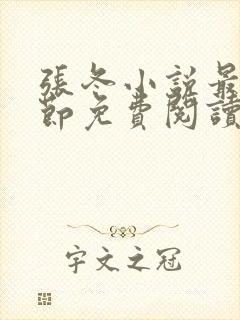 張冬小説最
節免費閱讀
宇文之冠